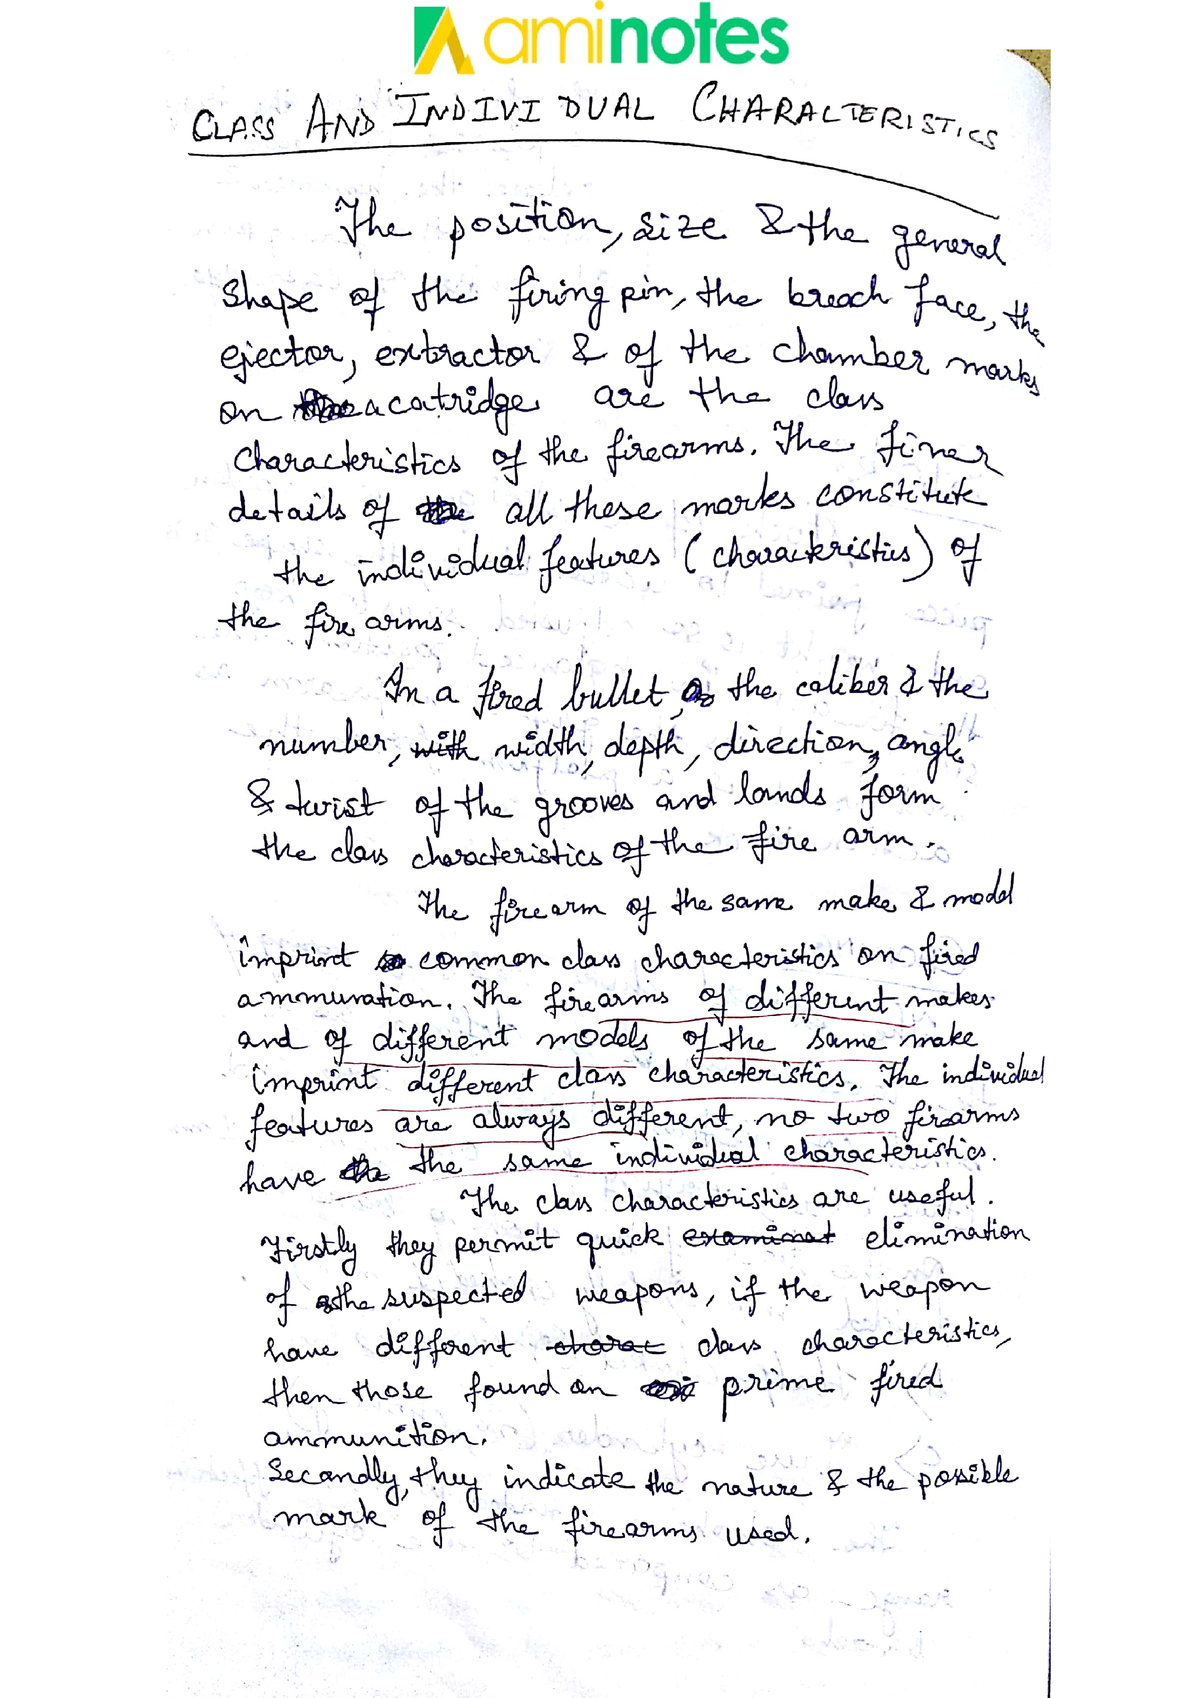 aminotes
CLASS AND INDIVIDUAL CHARACTERISTICS
The position, size & the general
shape of the firing pin, the breach face, the
ejector, extractor & of the chamber marks
on a catridge are the class
characteristics of the firearms. The finer
details of all these marks constitute
the individual features (characteristics) of
the fire arms.
In a fired bullet, the caliber & the
number, with width, depth, direction, angle
& twist of the grooves and lands form
the class characteristics of the fire arm.
The firearm of the same make & model
imprint common class characteristics on fired
ammunation. The firearms of different makes
and of different models of the same make
imprint different class characteristics. The individual
features are always different, no two firearms
have the same individual characteristics.
The class characteristics are useful.
Firstly they permit quick examinat elimination
of the suspected weapons, if the weapon
have different charac class characteristics,
then those found on prime fired
ammunition.
Secondly, they indicate the nature & the possible
mark of the firearms used.